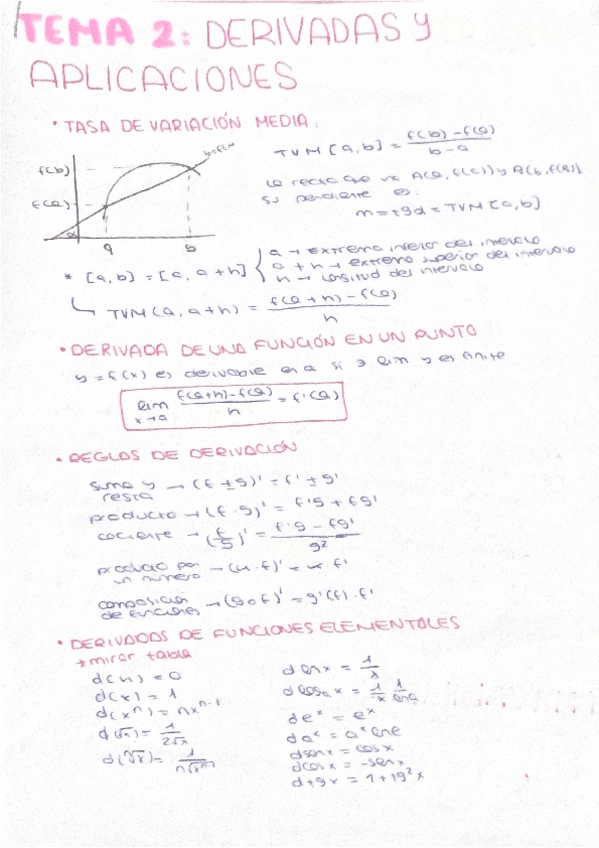 TEMA 2: DERIVADAS Y
APLICACIONES
• TASA DE VARIACIÓN MEDIA:
y=f(x)
f(b)
f(a)
α
a b
TVM [a,b] = f(b) - f(a) / b - a
La recta que va A(a, f(a)) y B(b, f(b)).
Su pendiente es:
m = tgα = TVM [a,b]
* [a,b] = [a, a+h] { a → extremo inferior del intervalo
a+h → extremo superior del intervalo
h → longitud del intervalo
↳ TVM (a, a+h) = f(a+h) - f(a) / h
• DERIVADA DE UNA FUNCIÓN EN UN PUNTO
y = f(x) es derivable en a si ∃ lim y es finite
lim x→a f(a+h) - f(a) / h = f'(a)
• REGLAS DE DERIVACIÓN
suma y resta → (f ± g)' = f' ± g'
producto → (f · g)' = f'g + fg'
cociente → (f/g)' = f'g - fg' / g²
producto por un número → (k·f)' = k·f'
composición de funciones → (g o f)' = g'(f)·f'
• DERIVADAS DE FUNCIONES ELEMENTALES
* mirar tabla
d(k) = 0
d(x) = 1
d(xⁿ) = nxⁿ⁻¹
d(√x) = 1 / 2√x
d lnx = 1/x
d logₐx = 1/x 1/lna
deˣ = eˣ
daˣ = aˣ lna
dsenx = cosx
dcosx = -senx
dtgx = 1+tg²x